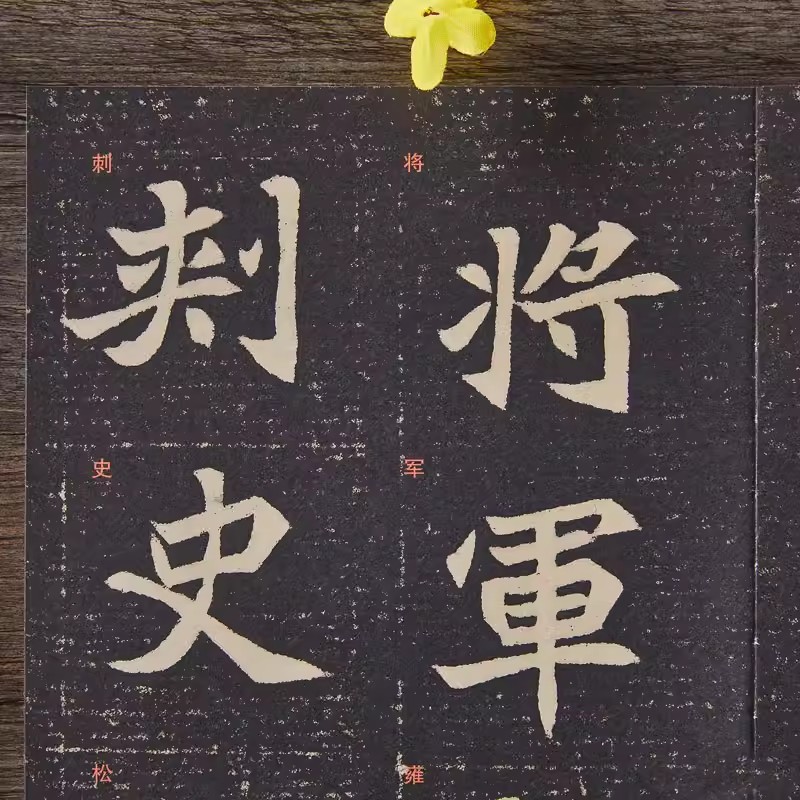 将
将
军
軍
雍
刺
刾
史
史
松